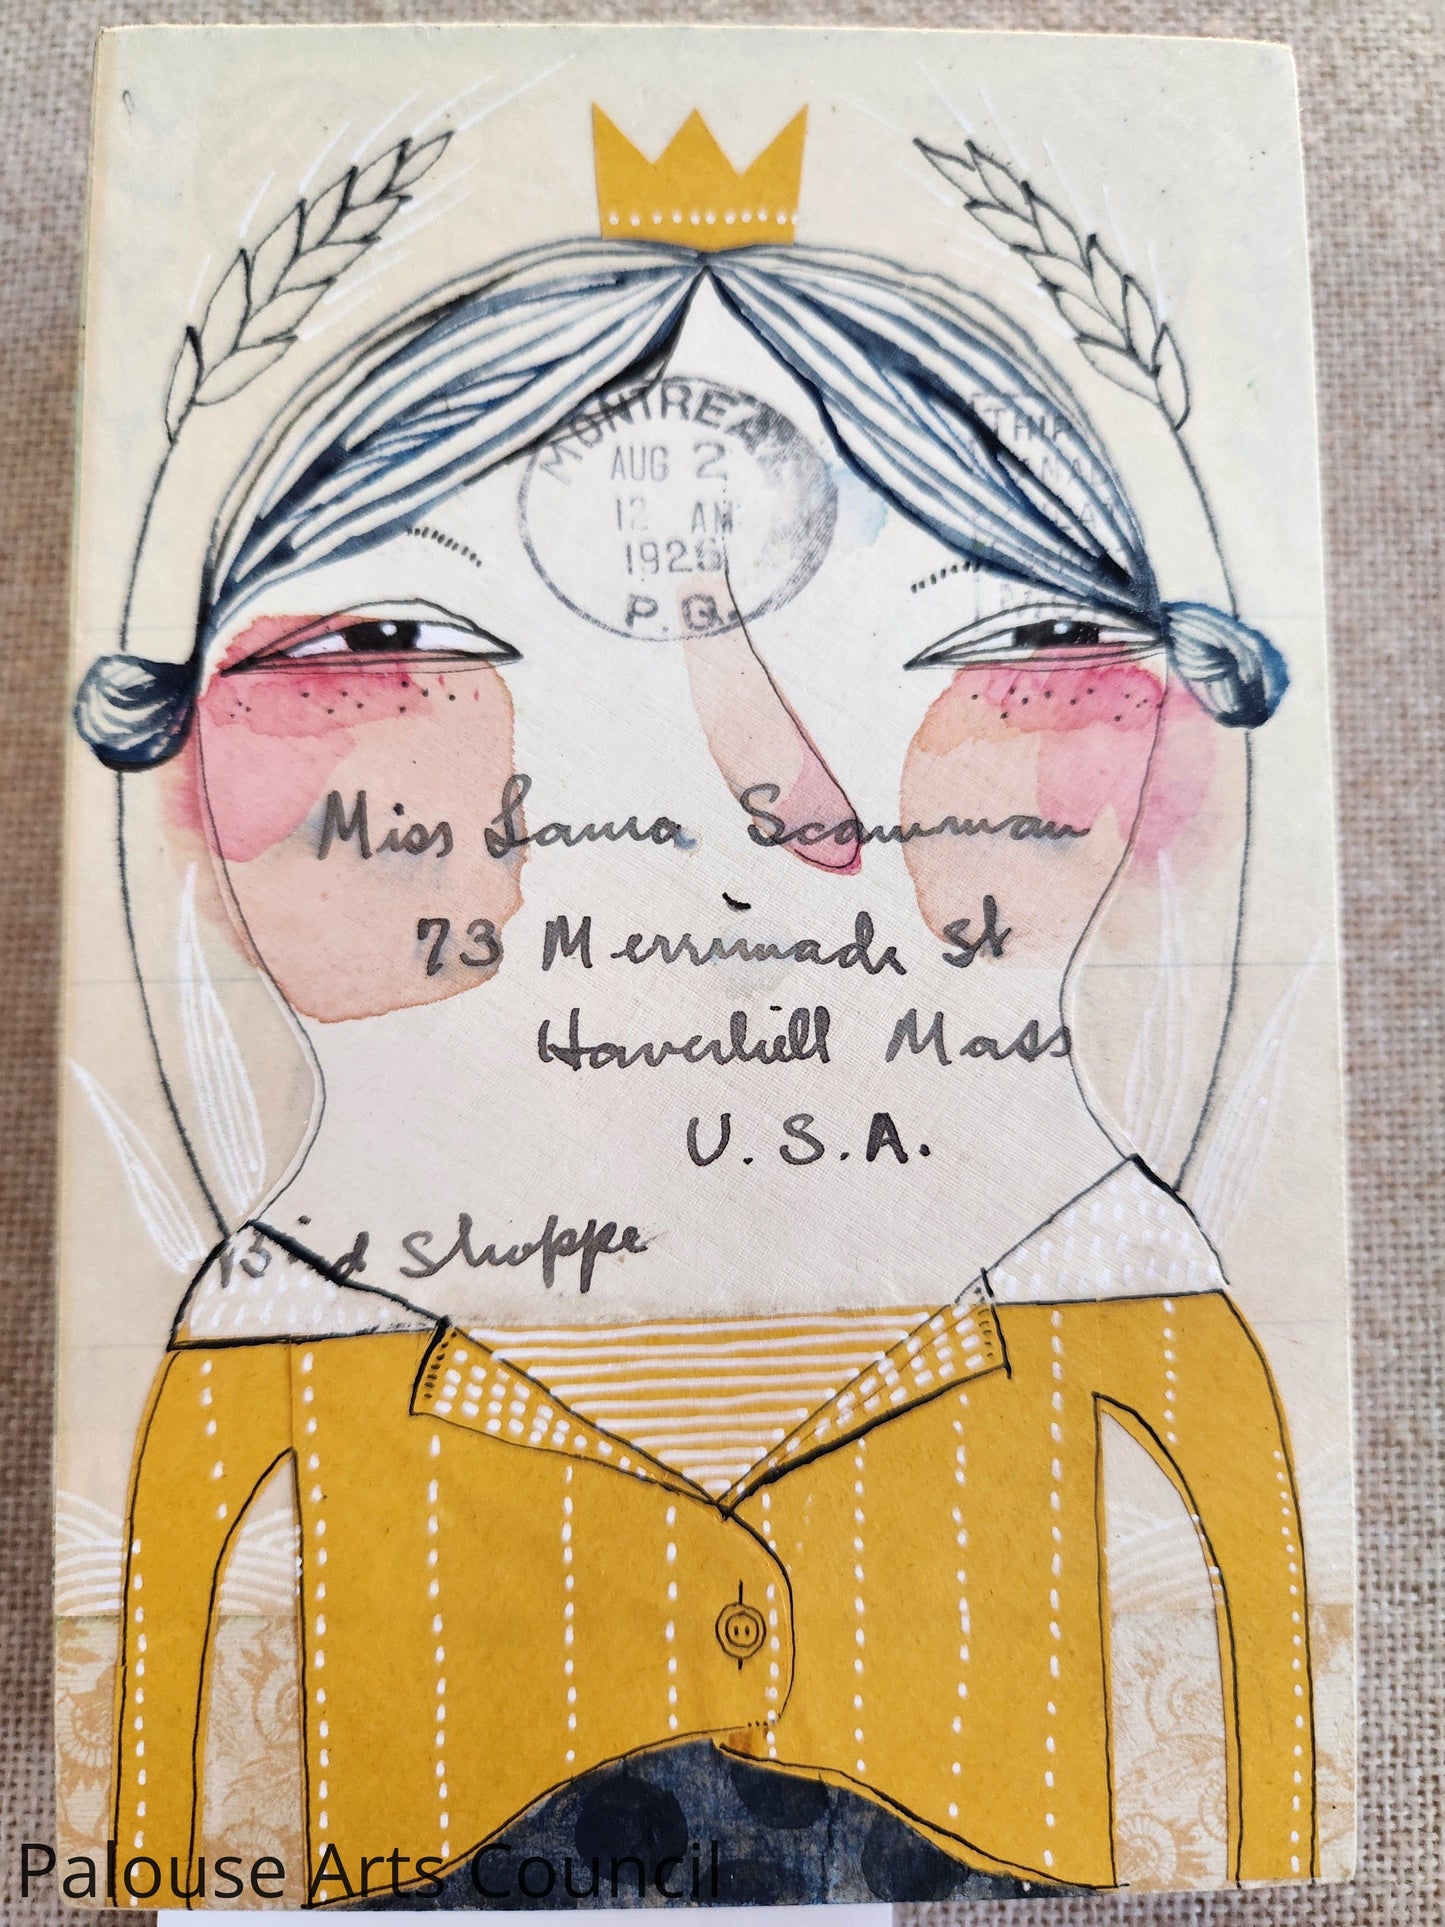 MONTREAL
AUG 2
12 AM
1926
P.Q.
Miss Laura
73 Merrimack St
Haverhill Mass
U.S.A.
Bird Shoppe
Palouse Arts Council